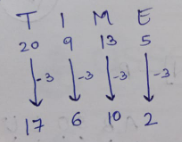 T I M E
20 9 13 5
-3 -3 -3 -3
17 6 10 2